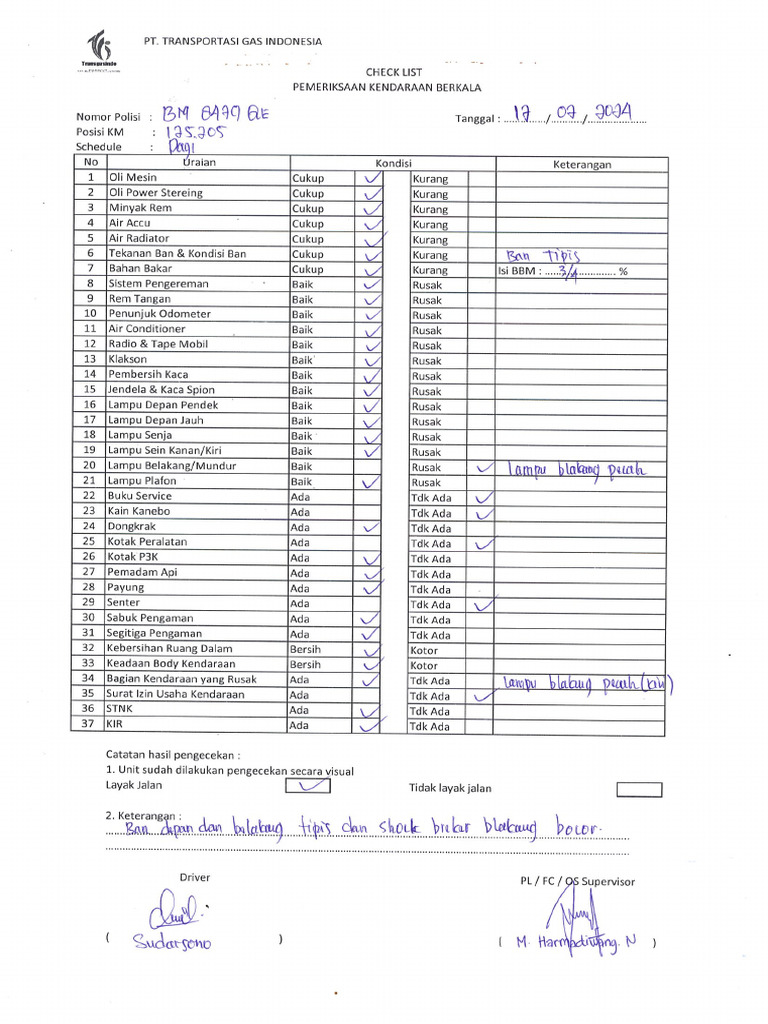 Transgasindo
PT. TRANSPORTASI GAS INDONESIA
CHECK LIST
PEMERIKSAAN KENDARAAN BERKALA
Nomor Polisi : BM 8479 QE
Tanggal : 17 / 07 / 2024
Posisi KM : 125.205
Schedule : Pagi
No Uraian Kondisi Keterangan
1 Oli Mesin Cukup ✓ Kurang
2 Oli Power Stereing Cukup ✓ Kurang
3 Minyak Rem Cukup ✓ Kurang
4 Air Accu Cukup ✓ Kurang
5 Air Radiator Cukup ✓ Kurang
6 Tekanan Ban & Kondisi Ban Cukup ✓ Kurang Ban Tipis
7 Bahan Bakar Cukup ✓ Kurang Isi BBM : 3/4 %
8 Sistem Pengereman Baik ✓ Rusak
9 Rem Tangan Baik ✓ Rusak
10 Penunjuk Odometer Baik ✓ Rusak
11 Air Conditioner Baik ✓ Rusak
12 Radio & Tape Mobil Baik ✓ Rusak
13 Klakson Baik ✓ Rusak
14 Pembersih Kaca Baik ✓ Rusak
15 Jendela & Kaca Spion Baik ✓ Rusak
16 Lampu Depan Pendek Baik ✓ Rusak
17 Lampu Depan Jauh Baik ✓ Rusak
18 Lampu Senja Baik ✓ Rusak
19 Lampu Sein Kanan/Kiri Baik ✓ Rusak
20 Lampu Belakang/Mundur Baik Rusak ✓ Lampu blakang pecah
21 Lampu Plafon Baik ✓ Rusak
22 Buku Service Ada Tdk Ada ✓
23 Kain Kanebo Ada Tdk Ada ✓
24 Dongkrak Ada ✓ Tdk Ada
25 Kotak Peralatan Ada Tdk Ada ✓
26 Kotak P3K Ada ✓ Tdk Ada
27 Pemadam Api Ada ✓ Tdk Ada
28 Payung Ada ✓ Tdk Ada
29 Senter Ada Tdk Ada ✓
30 Sabuk Pengaman Ada ✓ Tdk Ada
31 Segitiga Pengaman Ada ✓ Tdk Ada
32 Kebersihan Ruang Dalam Bersih ✓ Kotor
33 Keadaan Body Kendaraan Bersih ✓ Kotor
34 Bagian Kendaraan yang Rusak Ada ✓ Tdk Ada Lampu blakang pecah
35 Surat Izin Usaha Kendaraan Ada Tdk Ada ✓
36 STNK Ada ✓ Tdk Ada
37 KIR Ada ✓ Tdk Ada
Catatan hasil pengecekan :
1. Unit sudah dilakukan pengecekan secara visual
Layak Jalan ✓ Tidak layak jalan
2. Keterangan :
Ban depan dan belakang tipis dan shock breker blakang bocor.
Driver PL / FC / OS Supervisor
( Sudarsono ) ( M. N )